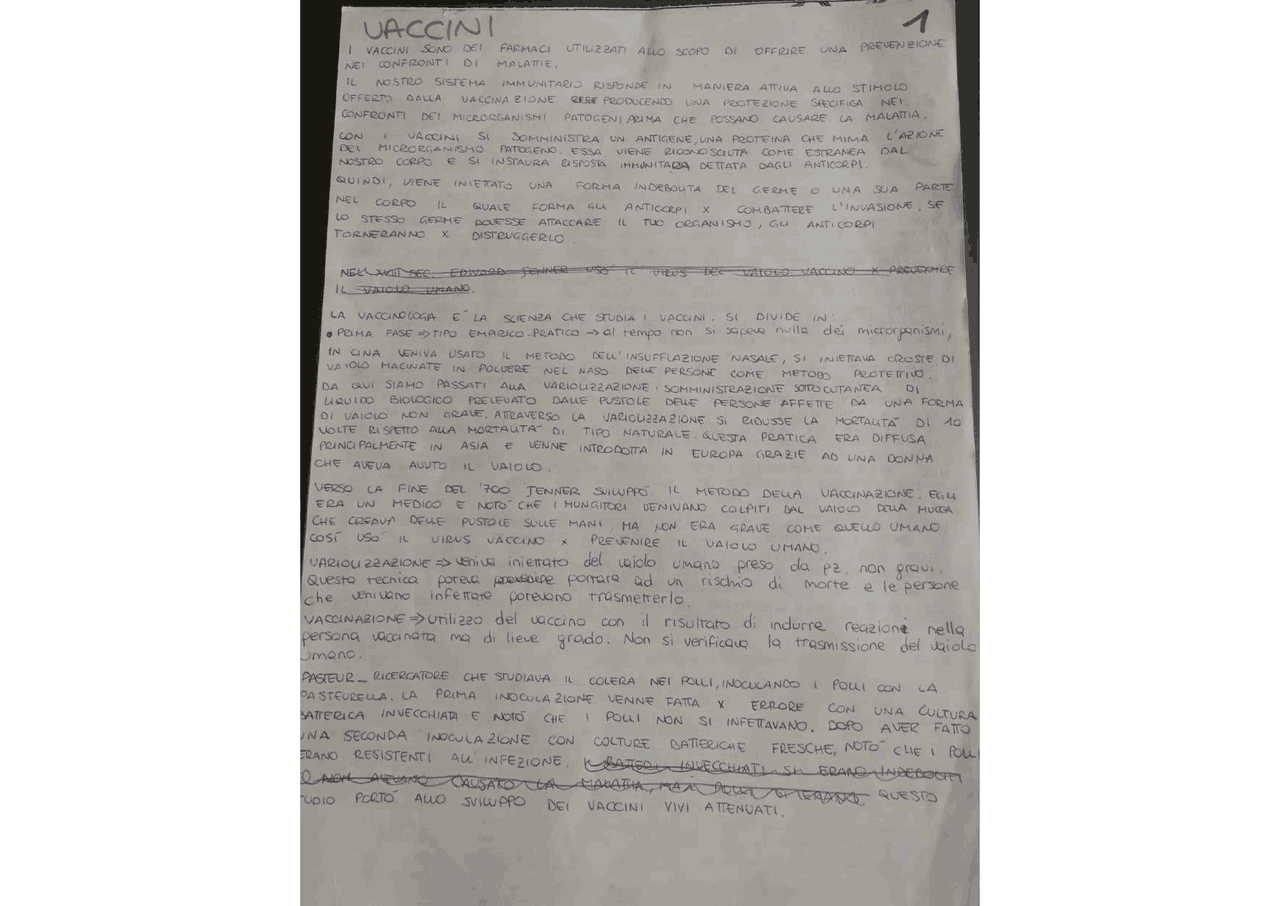 VACCINI
1
I VACCINI SONO DEI FARMACI UTILIZZATI ALLO SCOPO DI OFFRIRE UNA PREVENZIONE
NEI CONFRONTI DI MALATTIE.
IL NOSTRO SISTEMA IMMUNITARIO RISPONDE IN MANIERA ATTIVA ALLO STIMOLO
OFFERTO DALLA VACCINAZIONE PRODUCENDO UNA PROTEZIONE SPECIFICA NEI
CONFRONTI DEI MICRORGANISMI PATOGENI PRIMA CHE POSSANO CAUSARE LA MALATTIA.
CON I VACCINI SI SOMMINISTRA UN ANTIGENE, UNA PROTEINA CHE MIMA L'AZIONE
DEL MICRORGANISMO PATOGENO. ESSA VIENE RICONOSCIUTA COME ESTRANEA DAL
NOSTRO CORPO E SI INSTAURA RISPOSTA IMMUNITARIA DETTATA DAGLI ANTICORPI.
QUINDI, VIENE INIETTATO UNA FORMA INDEBOLITA DEL GERME O UNA SUA PARTE
NEL CORPO IL QUALE FORMA GLI ANTICORPI X COMBATTERE L'INVASIONE. SE
LO STESSO GERME DOVESSE ATTACCARE IL TUO ORGANISMO, GLI ANTICORPI
TORNERANNO X DISTRUGGERLO.
NELL XVIII SEC. EDWARD JENNER USÒ IL VIRUS DEL VAIOLO VACCINO X PREVENIRE
IL VAIOLO UMANO.
LA VACCINOLOGA E' LA SCIENZA CHE STUDIA I VACCINI. SI DIVIDE IN:
• PRIMA FASE => TIPO EMPIRICO-PRATICO → al tempo non si sapeva nulla dei microrganismi,
IN CINA VENIVA USATO IL METODO DELL'INSUFFLAZIONE NASALE, SI INIETTAVA CROSTE DI
VAIOLO MACINATE IN POLVERE NEL NASO DELLE PERSONE COME METODO PROTETTIVO.
DA QUI SIAMO PASSATI ALLA VARIOLIZZAZIONE: SOMMINISTRAZIONE SOTTOCUTANEA DI
LIQUIDO BIOLOGICO PRELEVATO DALLE PUSTOLE DELLE PERSONE AFFETTE DA UNA FORMA
DI VAIOLO NON GRAVE. ATTRAVERSO LA VARIOLIZZAZIONE SI RIDUSSE LA MORTALITÀ DI 10
VOLTE RISPETTO ALLA MORTALITÀ DI TIPO NATURALE. QUESTA PRATICA ERA DIFFUSA
PRINCIPALMENTE IN ASIA E VENNE INTRODOTTA IN EUROPA GRAZIE AD UNA DONNA
CHE AVEVA AVUTO IL VAIOLO.
VERSO LA FINE DEL '700 JENNER SVILUPPÒ IL METODO DELLA VACCINAZIONE. EGLI
ERA UN MEDICO E NOTÒ CHE I MUNGITORI VENIVANO COLPITI DAL VAIOLO DELLA MUCCA
CHE CREAVA DELLE PUSTOLE SULLE MANI, MA NON ERA GRAVE COME QUELLO UMANO.
COSÌ USÒ IL VIRUS VACCINO X PREVENIRE IL VAIOLO UMANO.
VARIOLIZZAZIONE => veniva iniettato del vaiolo umano preso da pz. non gravi.
Questa tecnica poteva portare ad un rischio di morte e le persone
che venivano infettate potevano trasmetterlo.
VACCINAZIONE => utilizzo del vaccino con il risultato di indurre reazioni nella
persona vaccinata ma di lieve grado. Non si verificava la trasmissione del vaiolo
umano.
PASTEUR_ RICERCATORE CHE STUDIAVA IL COLERA NEI POLLI, INOCULANDO I POLLI CON LA
PASTEURELLA. LA PRIMA INOCULAZIONE VENNE FATTA X ERRORE CON UNA CULTURA
BATTERICA INVECCHIATA E NOTÒ CHE I POLLI NON SI INFETTAVANO. DOPO AVER FATTO
UNA SECONDA INOCULAZIONE CON COLTURE BATTERICHE FRESCHE, NOTÒ CHE I POLLI
ERANO RESISTENTI ALL'INFEZIONE. I BATTERI INVECCHIATI SI ERANO INDEBOLITI
E NON AVEVANO CAUSATO LA MALATTIA, MA I POLLI QUESTO
TUDIO PORTÒ ALLO SVILUPPO DEI VACCINI VIVI ATTENUATI.